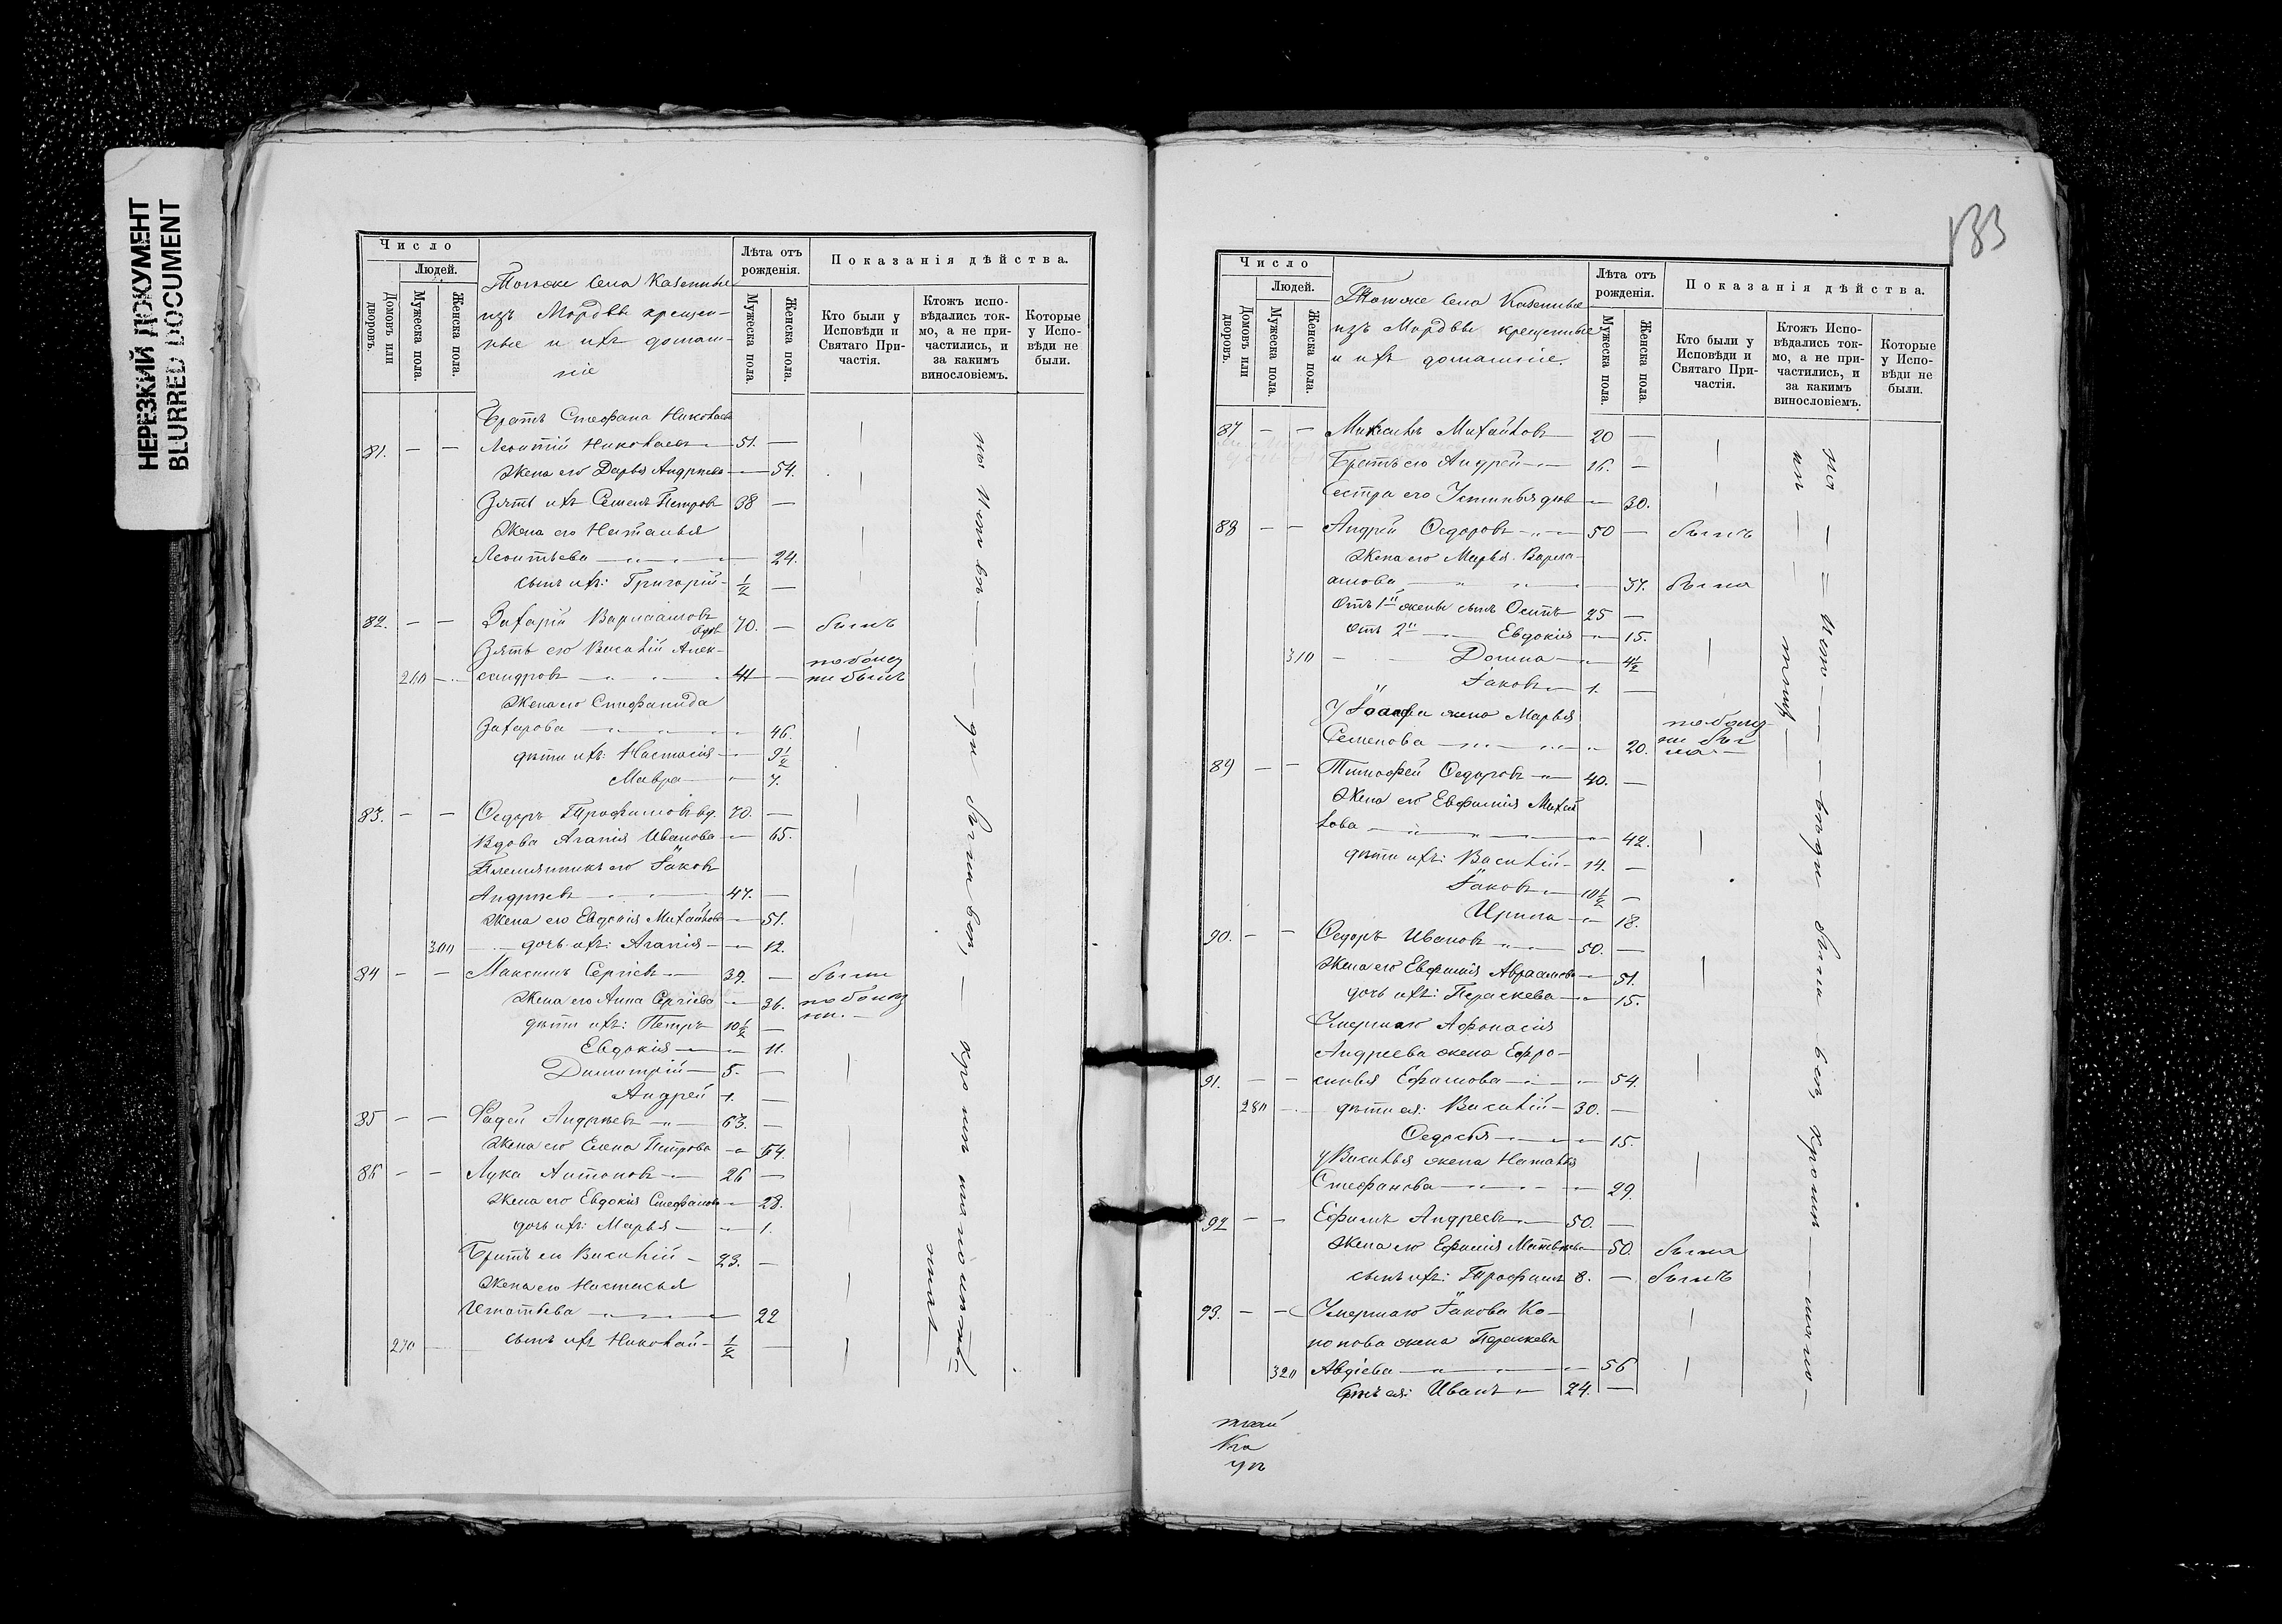 НЕРЕЗКИЙ ДОКУМЕНТ
BLURRED DOCUMENT
Число
Людей.
Домовъ или дворовъ.
Мужеска пола.
Женска пола.
Тогоже села Казенные
изъ Мордвы крещен-
ные и ихъ домаш-
ніе
Лѣта отъ рожденія.
Мужеска пола.
Женска пола.
Показанія дѣйства.
Кто были у Исповѣди и Святаго Причастія.
Ктожъ исповѣдались токмо, а не причастились, и за какимъ винословіемъ.
Которые у Исповѣди не были.
Братъ Стефана Николаев
81. — — Леонтій Николаевъ 51. —
Жена его Дарья Андреева — 54.
Зять ихъ Семенъ Петровъ 38 —
Жена его Наталья
Леонтьева — 24.
сынъ ихъ: Григорій 1/2 —
82. — — Захарій Варлаамовъ 70. — былъ
Зять его Василій Алек-
260 — сандровъ 41 —
Жена его Стефанида
Захарова — 46.
дѣти ихъ: Настасія — 9 1/2
Мавра — 7.
83. — — Ѳедоръ Трофимовъ вд. 70. —
Вдова Агапія Иванова — 65.
Племянникъ его Іаковъ
Андреевъ 47. —
Жена его Евдокія Михайлова — 51.
300 дочь ихъ: Агапія — 12.
84 — — Максимъ Сергіевъ 39. — были
Жена его Анна Сергіева — 36.
дѣти ихъ: Петръ 10 1/2 —
Евдокія — 11.
Димитрій 5. —
Андрей 1. —
85 — — Фадей Андреевъ 63. —
Жена его Елена Петрова — 54.
86 — — Лука Антоновъ 26 —
Жена его Евдокія Стефанова — 28.
дочь ихъ: Марья — 1.
Братъ его Василій 23. —
Жена его Настасья
Игнатьева — 22
270 сынъ ихъ Николай 1/2 —
133
Число
Людей.
Домовъ или дворовъ.
Мужеска пола.
Женска пола.
Тогоже села Казенные
изъ Мордвы крещенные
и ихъ домашніе.
Лѣта отъ рожденія.
Мужеска пола.
Женска пола.
Показанія дѣйства.
Кто были у Исповѣди и Святаго Причастія.
Ктожъ Исповѣдались токмо, а не причастились, и за какимъ винословіемъ.
Которые у Исповѣди не были.
87 — — Михайловъ 20 —
Братъ его Андрей 16. —
Сестра его Устинья — 30.
88 — — Андрей Ѳедоровъ 50 — былъ
Жена его Марья Варла-
амова — была
Отъ 1й жены сынъ Осипъ 25 —
Отъ 2й Евдокія — 15.
310 Домна — 4 1/2
Іаковъ 1. —
жена Марья
Семенова — 20.
89 — — Тимофей Ѳедоровъ 40. —
Жена его Евфимія Михай
лова — 42.
дѣти ихъ: Василій 14. —
Іаковъ 10 1/2 —
Ирина — 18.
90. — — Ѳедоръ Ивановъ 50. —
Жена его Евфимія Авраамова — 51.
дочь ихъ: Параскева — 15.
Умершаго Афонасія
Андреева жена Ефро-
91. — — синья Ефимова — 54.
280 дѣти ея: Василій 30. —
Ѳедосья — 15.
у Василья жена Наталья
Стефанова — 29.
92 — — Ефимъ Андреевъ 50. —
Жена его Ефимія Матвѣева — 50. была
сынъ ихъ: Трофимъ 8. — былъ
93. — — Умершаго Іакова Ко-
нонова жена Параскева
320 Авдіева — 56
сынъ ея: Иванъ 24. —